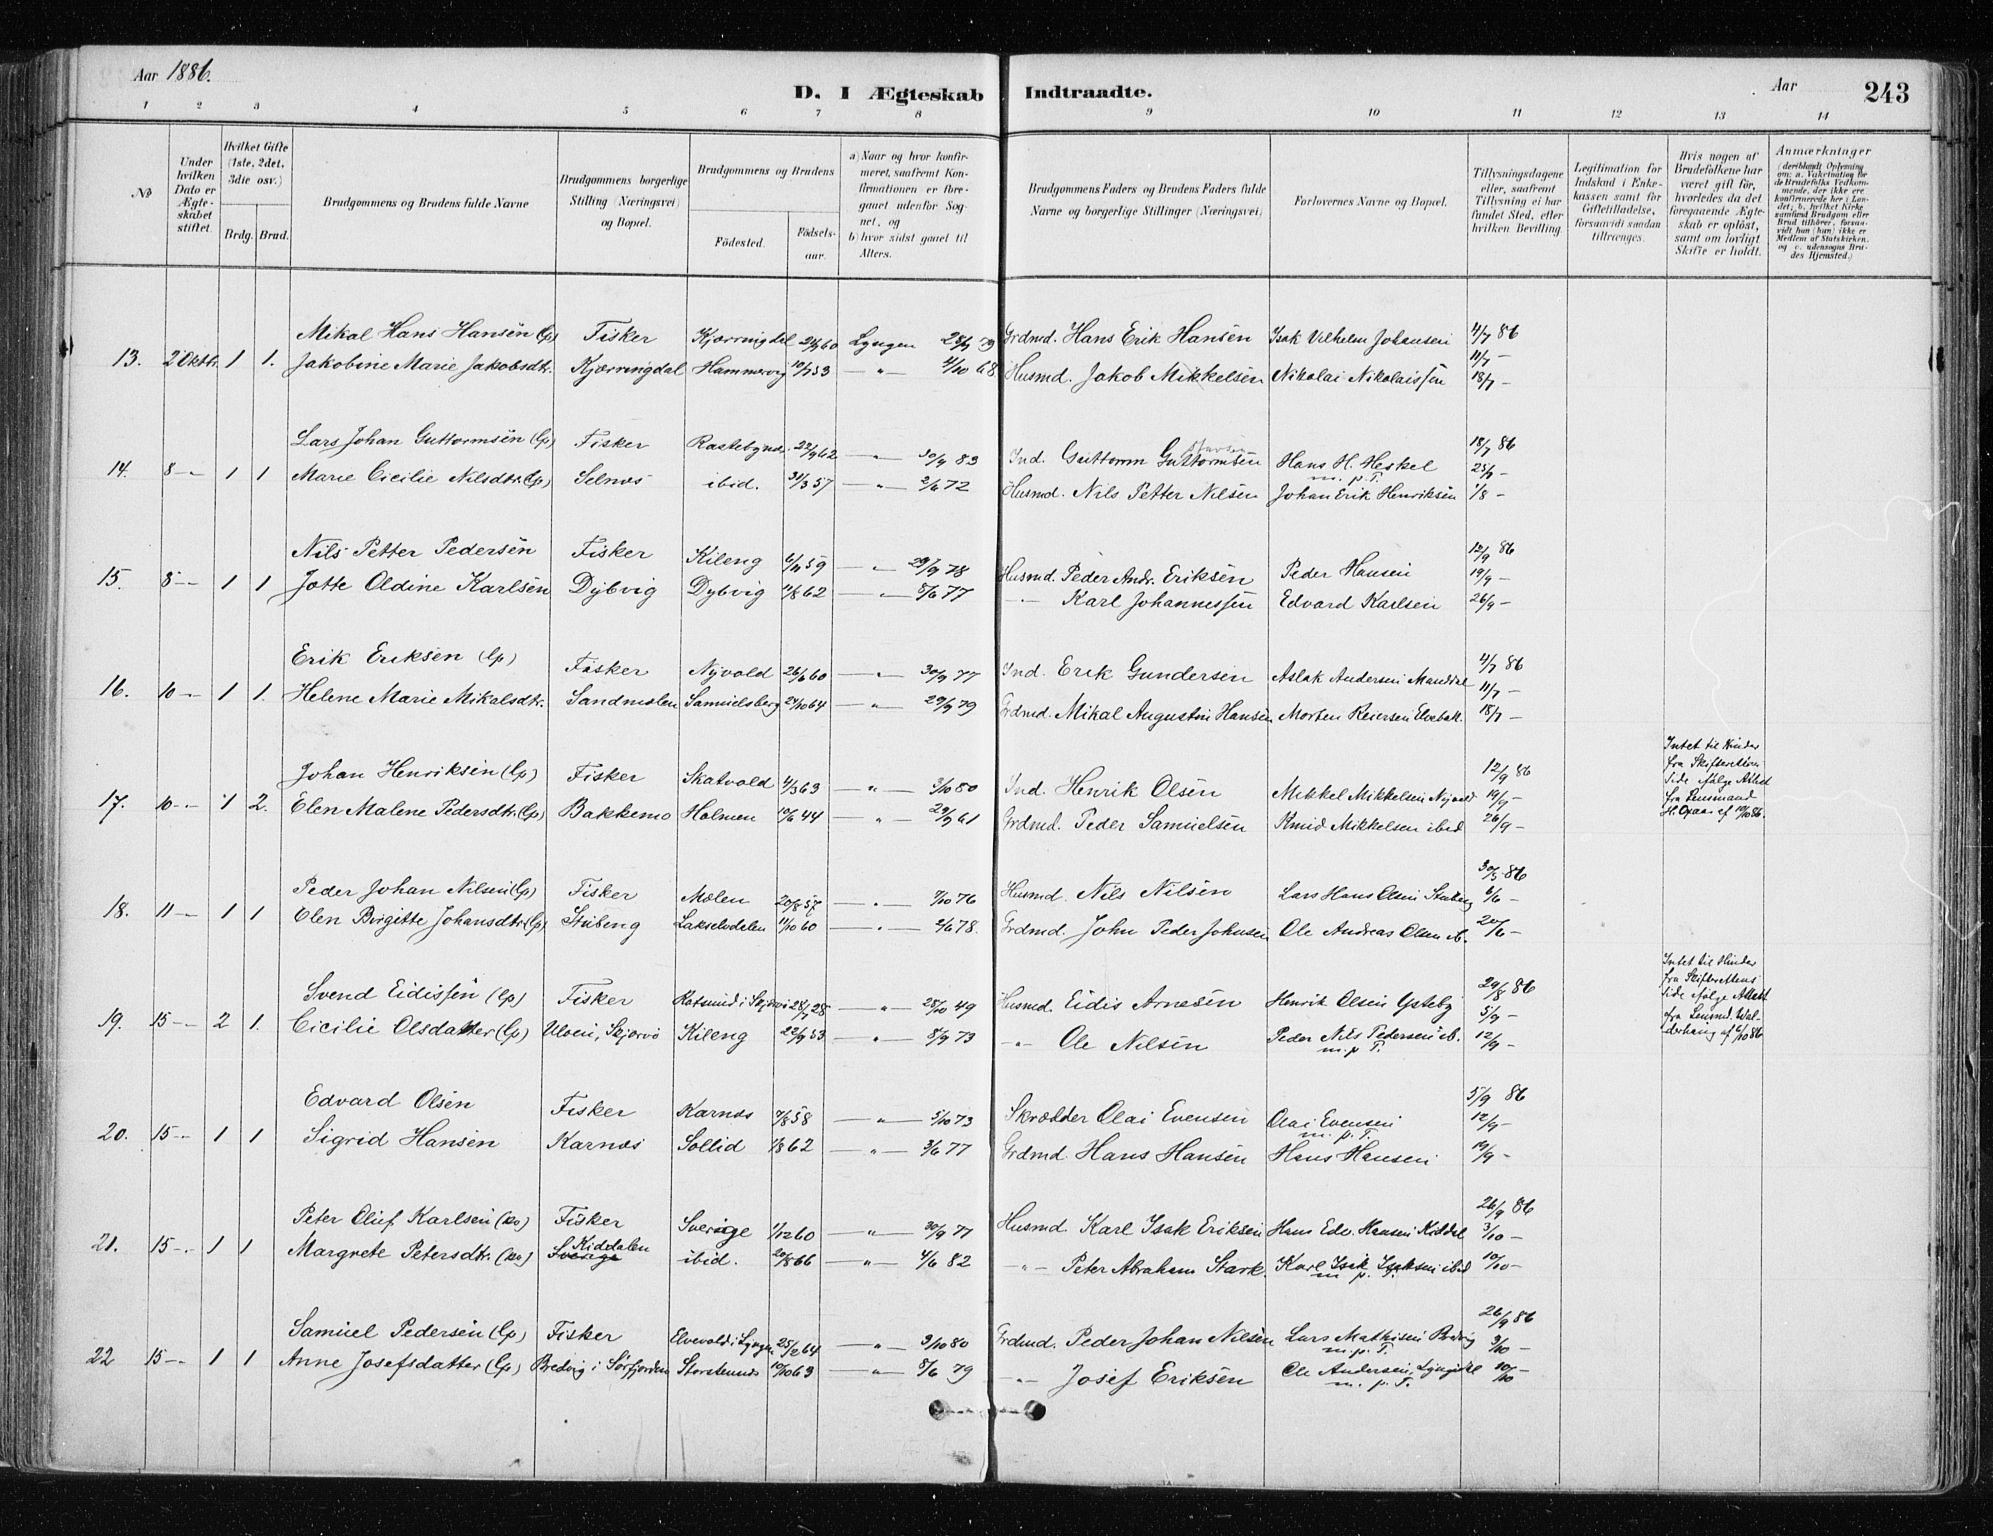 Aar 1886.
D. I Ægteskab Indtraadte.
Aar
243
1 2 3 4 5 6 7 8 9 10 11 12 13 14
No
Under hvilken Dato er Ægteskabet stiftet.
Hvilket Gifte (1ste, 2det, 3die osv.)
Brdg. Brud.
Brudgommens og Brudens fulde Navne
Brudgommens borgerlige Stilling (Næringsvei) og Bopæl.
Brudgommens og Brudens
Födested.
Födsels-aar.
a) Naar og hvor konfirmeret, saafremt Konfirmationen er foregaaet udenfor Sognet, og
b) hvor sidst gaaet til Alters.
Brudgommens Faders og Brudens Faders fulde Navne og borgerlige Stillinger (Næringsvei)
Forlovernes Navne og Bopæl.
Tillysningsdagene eller, saafremt Tillysning ei har fundet Sted, efter hvilken Bevilling.
Legitimation for Indskud i Enkekassen samt for Giftetilladelse, forsaavidt saadan tiltrænges.
Hvis nogen af Brudefolkene har været gift før, hvorledes da det foregaaende Ægteskab er opløst, samt om lovligt Skifte er holdt.
Anmærkninger
(deriblandt Oplysning om: a. Vakcination for de Brudefolks Vedkommende, der ikke ere konfirmerede her i Landet; b. hvilket Kirkesamfund Brudgom eller Brud tilhörer, forsaavidt han (hun) ikke er Medlem af Statskirken, og c. udensogns Brudes Hjemsted.)
Mikal Hans Hansen (Lp) Fisker Kjærringdal 60 Lyngen 79 Grdmd. Hans Erik Hansen Isak Vilhelm Johansen 4/7 86
13. 2 Oktbr. 1 1. Jakobine Marie Jakobsdtr. Kjærringdal Hammervig 53 — „ — 4/10 68 Husmd. Jakob Mikkelsen Nikolai Nikolaissen 11/7 – 18/7 –
Lars Johan Guttormsen (Lp) Fisker 22/9 62 — „ — 30/9 83 Ind. Guttorm Guttormsen Hans H. Heskel m. p. T. 18/7 86
14. 8 – „ – 1 1 Marie Cicilie Nilsdtr. (Lp) Selnæs ibid. 31/3 57 — „ — 2/6 72 Husmd. Nils Petter Nilsen Johan Erik Henriksen 25/7 – 1/8 –
Nils Petter Pedersen Fisker Kileng 59 — „ — 29/9 78 Husmd. Peder Andr. Eriksen Peder Hansen 12/9 86
15. 8 – „ – 1 1 Jotte Oldine Karlsen Dybvig Dybvig 11/8 62 — „ — 8/6 77 — „ — Karl Johannessen Edvard Karlsen 19/9 – 26/9 –
Erik Eriksen (Lp) Fisker Nyvold 26/6 60 — „ — 30/9 77 Ind. Erik Gundersen Aslak Andersen Manddal 4/7 86
16. 10 – „ – 1 1. Helene Marie Mikalsdtr. Sandmælen Samuelsberg 24/10 64 — „ — 29/9 79 Grdmd. Mikal Augustin Hansen Morten Reiersen Elvebak. 11/7 – 18/7 –
Johan Henriksen (Lp) Fisker Skatvold 4/3 63 — „ — 3/10 80 Ind. Henrik Olsen Mikkel Mikkelsen Nyvold 12/9 86
17. 10 – „ – 1 2. Elen Malene Pedersdtr. (Lp) Bakkemo Holmen 10/6 44 — „ — 29/9 61 Grdmd. Peder Samuelsen Knud Mikkelsen ibid 19/9 – 26/9 –
Intet til Hinder fra Skifterettens Side ifølge Attest fra Lensmand H. af 19/10 86.
Peder Johan Nilsen (Lp) Fisker Mælen 20/8 57 — „ — 76 Husmd. Nils Nilsen Lars Hans Olsen Stubeng 30/5 86
18. 11 – „ – 1 1 Elen Birgitte Johansdtr. (Lp) Stubeng Lakselvdalen 11/10 60 — „ — 2/6 78. Grdmd. John Peder Johnsen Ole Andreas Olsen ib. 6/6 – 20/6 –
Svend Eidissen (Lp) Fisker Rotsund i Skjærvö 28/7 28 — „ — 28/10 49 Husmd. Eidis Arnesen Henrik Olsen Ysteby 29/8 86
19. 15 – „ – 2 1. Cicilie Olsdatter (Lp) Uloen, Skjærvö Kileng 22/9 53 — „ — 8/9 73 — „ — Ole Nilsen Peder Nils Pedersen ib. m. p. T. 5/9 – 12/9 –
Intet til Hinder fra Skifterettens Side ifølge Attest fra Lensmd. Walderhaug af 6/10 86
Edvard Olsen Fisker Karnæs 7/8 58 — „ — 5/10 73 Skrædder Olai Evensen Olai Evensen m. p. T. 5/9 86
20. 15 – „ – 1 1 Sigrid Hansen Karnæs Sollid 1/8 62 — „ — 3/6 77 Grdmd. Hans Hansen Hans Hansen 12/9 – 19/9 –
Peter Oluf Karlsen Fisker Sverige 1/12 60 — „ — 30/9 77 Husmd Karl Isak Eriksen Hans Edv. Hansen Kiddal 26/9 86
21. 15 – „ – 1 1 Margrete Petersdtr. Kiddalen Sverige ibid. 20/8 66 — „ — 4/6 82 — „ — Peter Abraham Stark. Karl Isak Isaksen ibid m. p. T. 3/10 – 10/10 –
Samuel Pedersen (Lp) Fisker Elvevold i Lyngen. 25/2 64 — „ — 3/10 80 Grdmd. Peder Johan Nilsen Lars Mathisen Bredvig m. p. T. 26/9 86
22 15 – „ – 1 1 Anne Josefsdatter (Lp) Bredvig i Sørfjorden Storstennæs 10/10 63 — „ — 8/6 79 — „ — Josef Eriksen Ole Andersen, m. p. T. 3/10 – 10/10 –